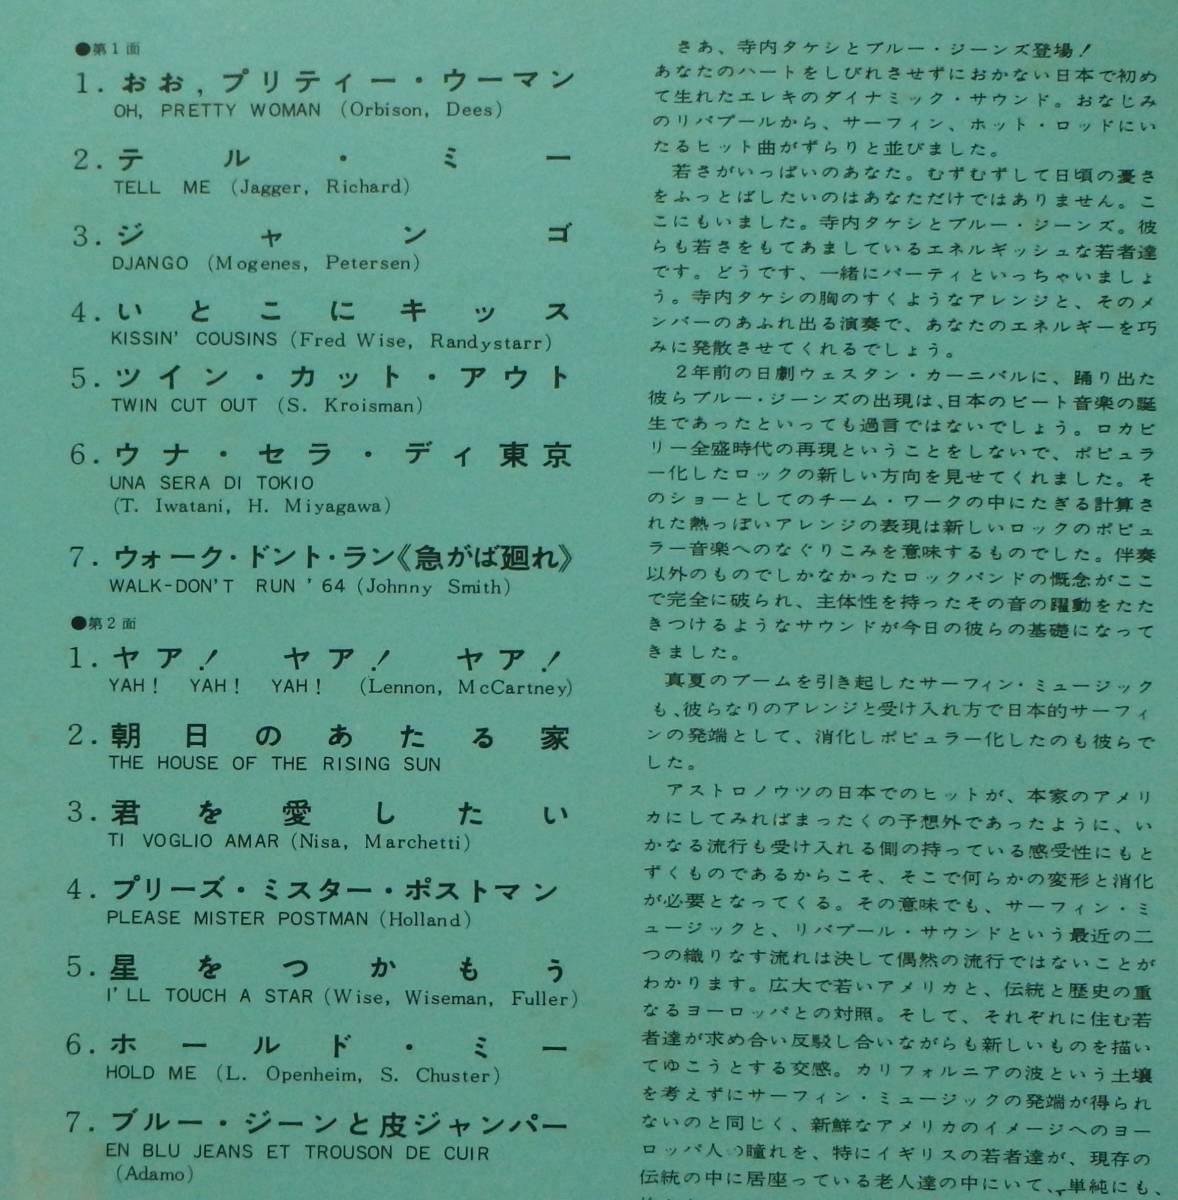 ●第1面
1. おお,プリティー・ウーマン
OH, PRETTY WOMAN (Orbison, Dees)
2. テル・ミー
TELL ME (Jagger, Richard)
3. ジャンゴ
DJANGO (Mogenes, Petersen)
4. いとこにキッス
KISSIN' COUSINS (Fred Wise, Randystarr)
5. ツイン・カット・アウト
TWIN CUT OUT (S. Kroisman)
6. ウナ・セラ・ディ東京
UNA SERA DI TOKIO
(T. Iwatani, H. Miyagawa)
7. ウォーク・ドント・ラン《急がば廻れ》
WALK-DON'T RUN '64 (Johnny Smith)
●第2面
1. ヤア! ヤア! ヤア!
YAH! YAH! YAH! (Lennon, McCartney)
2. 朝日のあたる家
THE HOUSE OF THE RISING SUN
3. 君を愛したい
TI VOGLIO AMAR (Nisa, Marchetti)
4. プリーズ・ミスター・ポストマン
PLEASE MISTER POSTMAN (Holland)
5. 星をつかもう
I'LL TOUCH A STAR (Wise, Wiseman, Fuller)
6. ホールド・ミー
HOLD ME (L. Openheim, S. Chuster)
7. ブルー・ジーンと皮ジャンパー
EN BLU JEANS ET TROUSON DE CUIR
(Adamo)
さあ、寺内タケシとブルー・ジーンズ登場!
あなたのハートをしびれさせずにおかない日本で初め
て生れたエレキのダイナミック・サウンド。おなじみ
のリバプールから、サーフィン、ホット・ロッドにい
たるヒット曲がずらりと並びました。
若さがいっぱいのあなた。むずむずして日頃の憂さ
をふっとばしたいのはあなただけではありません。こ
こにもいました。寺内タケシとブルー・ジーンズ。彼
らも若さをもてあましているエネルギッシュな若者達
です。どうです、一緒にパーティといっちゃいましょ
う。寺内タケシの胸のすくようなアレンジと、そのメ
ンバーのあふれ出る演奏で、あなたのエネルギーを巧
みに発散させてくれるでしょう。
2年前の日劇ウェスタン・カーニバルに、踊り出た
彼らブルー・ジーンズの出現は、日本のビート音楽の誕
生であったといっても過言ではないでしょう。ロカビ
リー全盛時代の再現ということをしないで、ポピュラ
ー化したロックの新しい方向を見せてくれました。そ
のショーとしてのチーム・ワークの中にたぎる計算さ
れた熱っぽいアレンジの表現は新しいロックのポピュ
ラー音楽へのなぐりこみを意味するものでした。伴奏
以外のものでしかなかったロックバンドの慨念がここ
で完全に破られ、主体性を持ったその音の躍動をたた
きつけるようなサウンドが今日の彼らの基礎になって
きました。
真夏のブームを引き起したサーフィン・ミュージック
も、彼らなりのアレンジと受け入れ方で日本的サーフィ
ンの発端として、消化しポピュラー化したのも彼らで
した。
アストロノウツの日本でのヒットが、本家のアメリ
カにしてみればまったくの予想外であったように、い
かなる流行も受け入れる側の持っている感受性にもと
ずくものであるからこそ、そこで何らかの変形と消化
が必要となってくる。その意味でも、サーフィン・ミ
ュージックと、リバプール・サウンドという最近の二
つの織りなす流れは決して偶然の流行ではないことが
わかります。広大で若いアメリカと、伝統と歴史の重
なるヨーロッパとの対照。そして、それぞれに住む若
者達が求め合い反駁し合いながらも新しいものを描い
てゆこうとする交感。カリフォルニアの波という土壌
を考えずにサーフィン・ミュージックの発端が得られ
ないのと同じく、新鮮なアメリカのイメージへのヨー
ロッパ人の瞳れを、特にイギリスの若者達が、現存の
伝統の中に居座っている老人達の中にいて、単純にも、